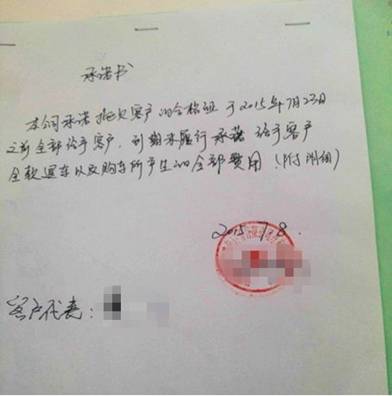 承诺书
本公司承诺拖欠客户的合格证于2015年7月23日
之前全部给予客户,到期未履行承诺给予客户
全款退车以及购车所产生的全部费用(附明细)
2015.7.8.
客户代表: